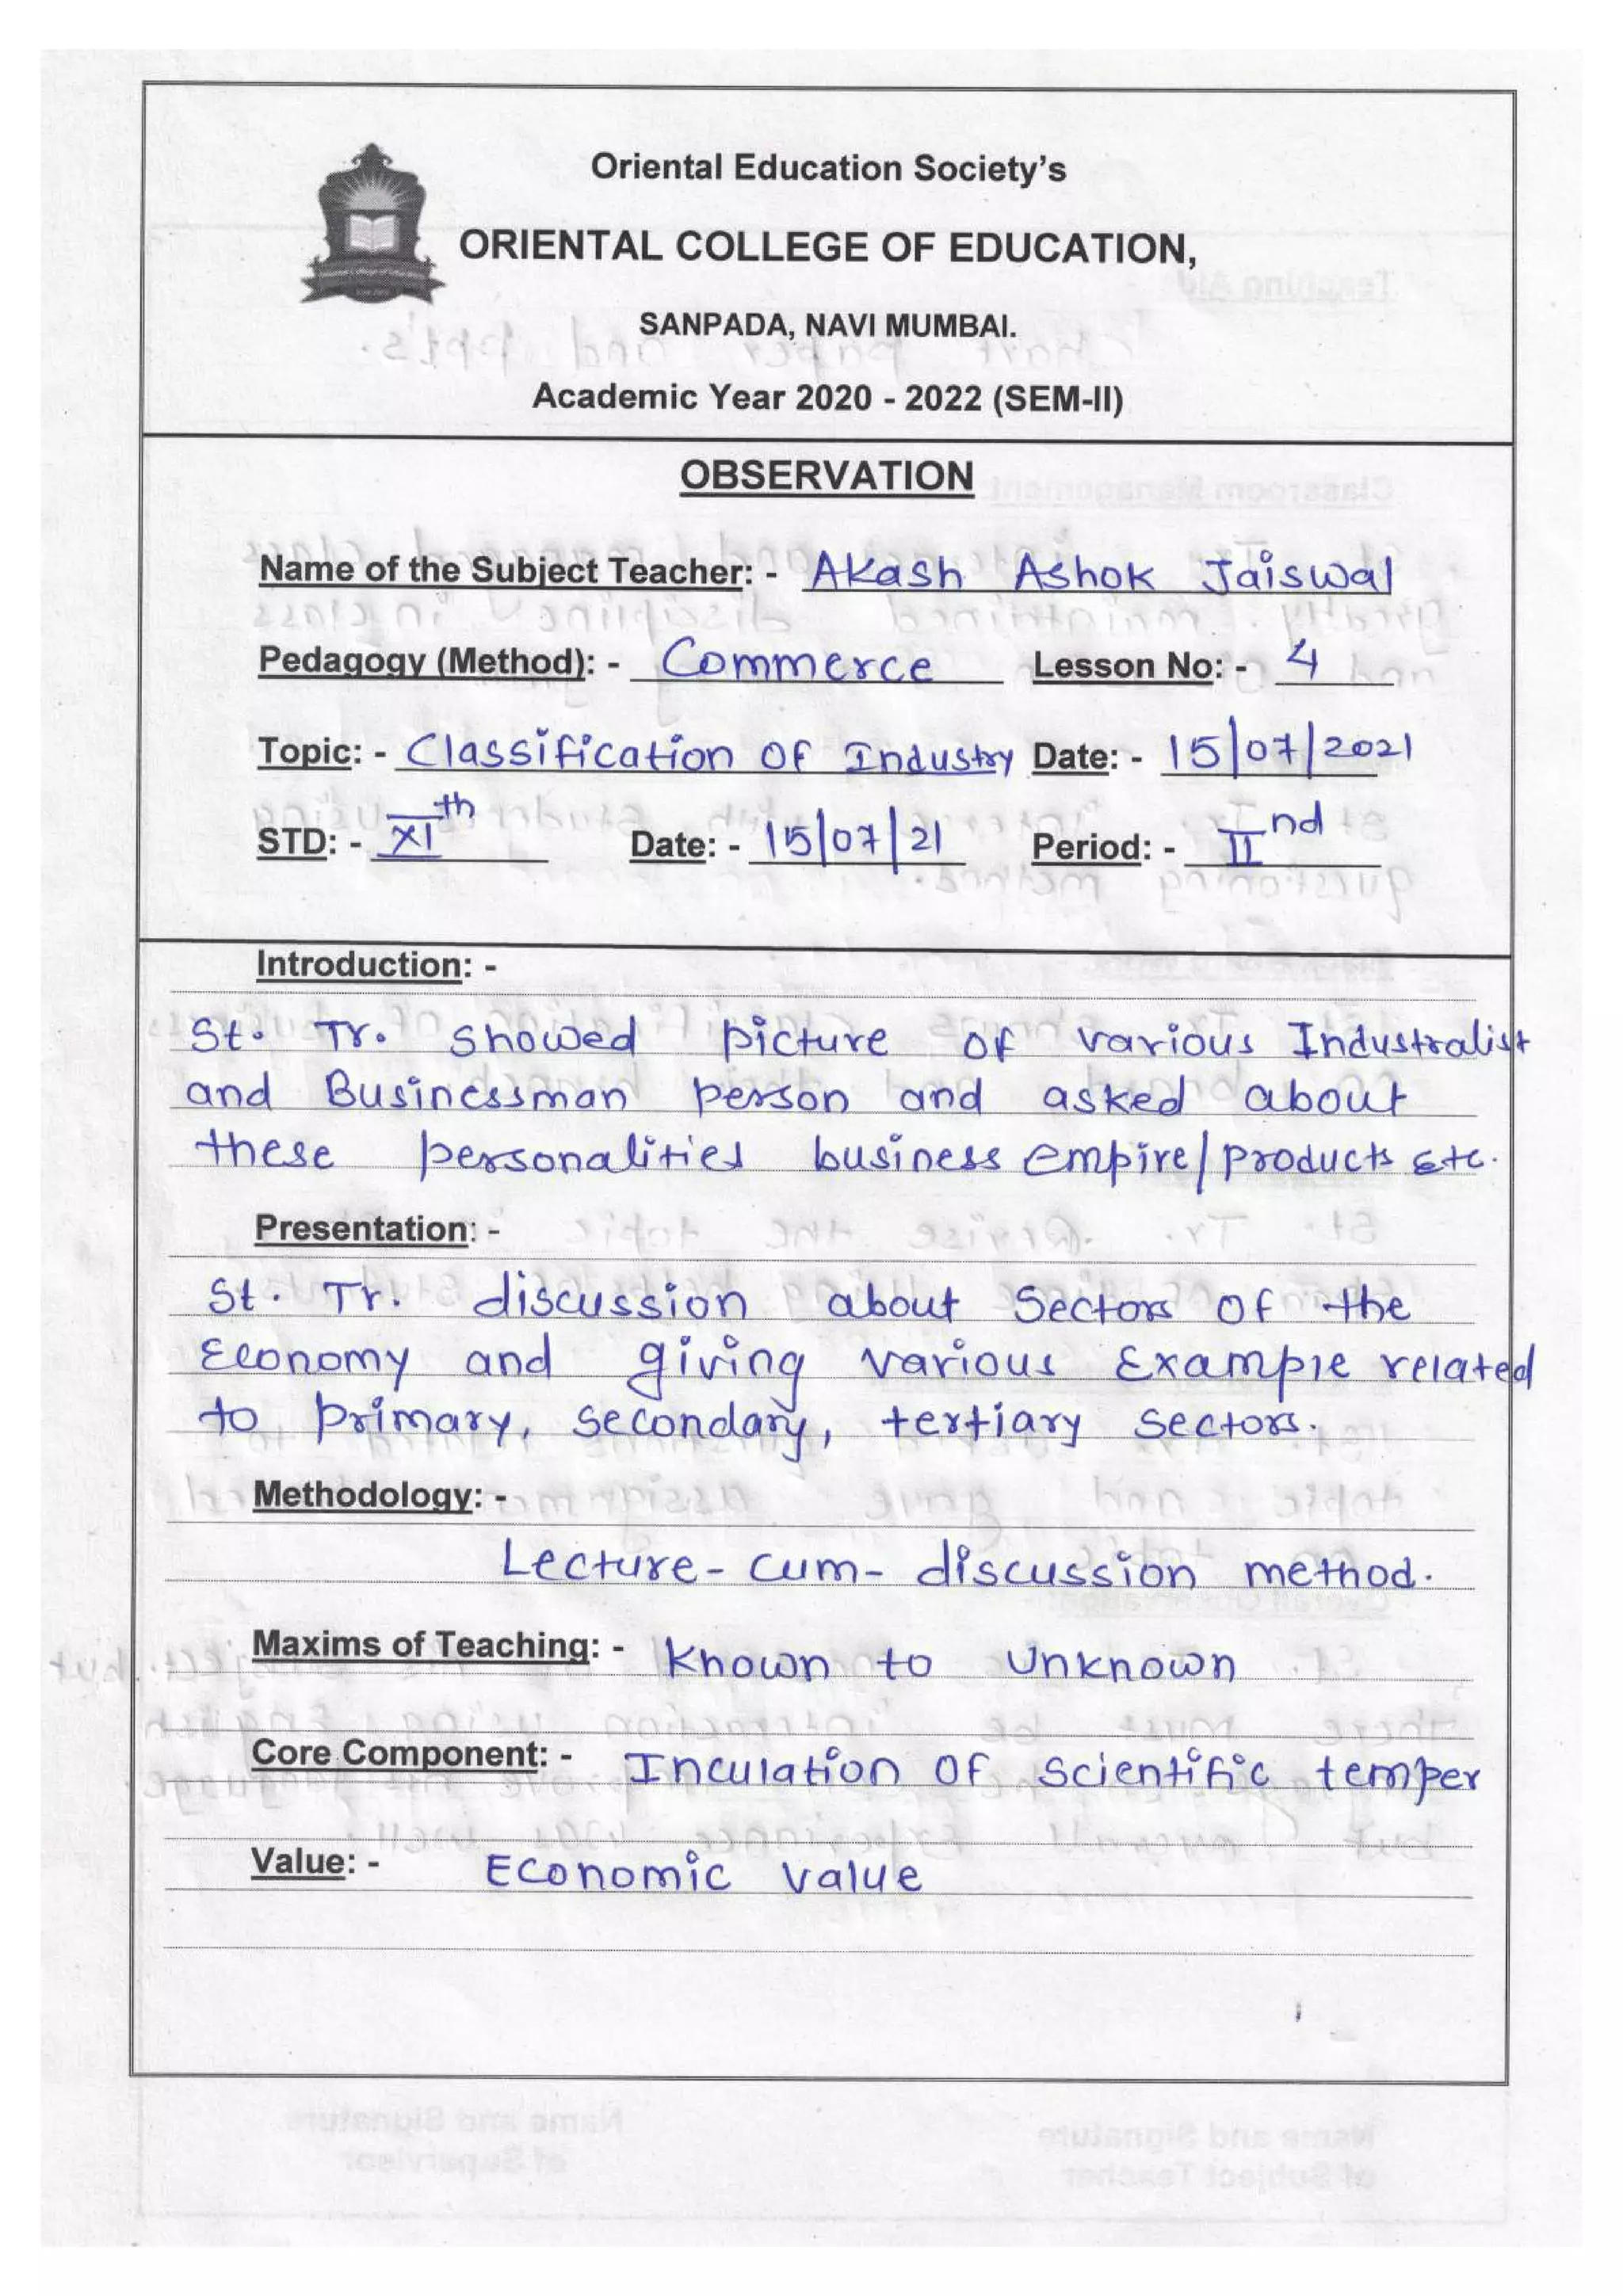 Oriental Education Society's
ORIENTAL COLLEGE OF EDUCATION,
SANPADA, NAVI MUMBAI.
Academic Year 2020 - 2022 (SEM-II)
OBSERVATION
Name of the Subject Teacher: - Akash Ashok Jaiswal
Pedagogy (Method): - Commerce Lesson No: - 4
Topic: - Classification Of Industry Date: - 15|07|2021
STD: - XIth Date: - 15|07|21 Period: - IInd
Introduction: -
St. Tr. showed picture of various Industralist
and Businessman person and asked about
these personalities business empire/products etc.
Presentation: -
St. Tr. discussion about Sectors of the
Economy and giving various Example related
to primary, secondary, tertiary sectors.
Methodology: -
Lecture-cum-discussion method.
Maxims of Teaching: - Known to Unknown
Core Component: - Inculation Of Scientific temper
Value: - Economic Value